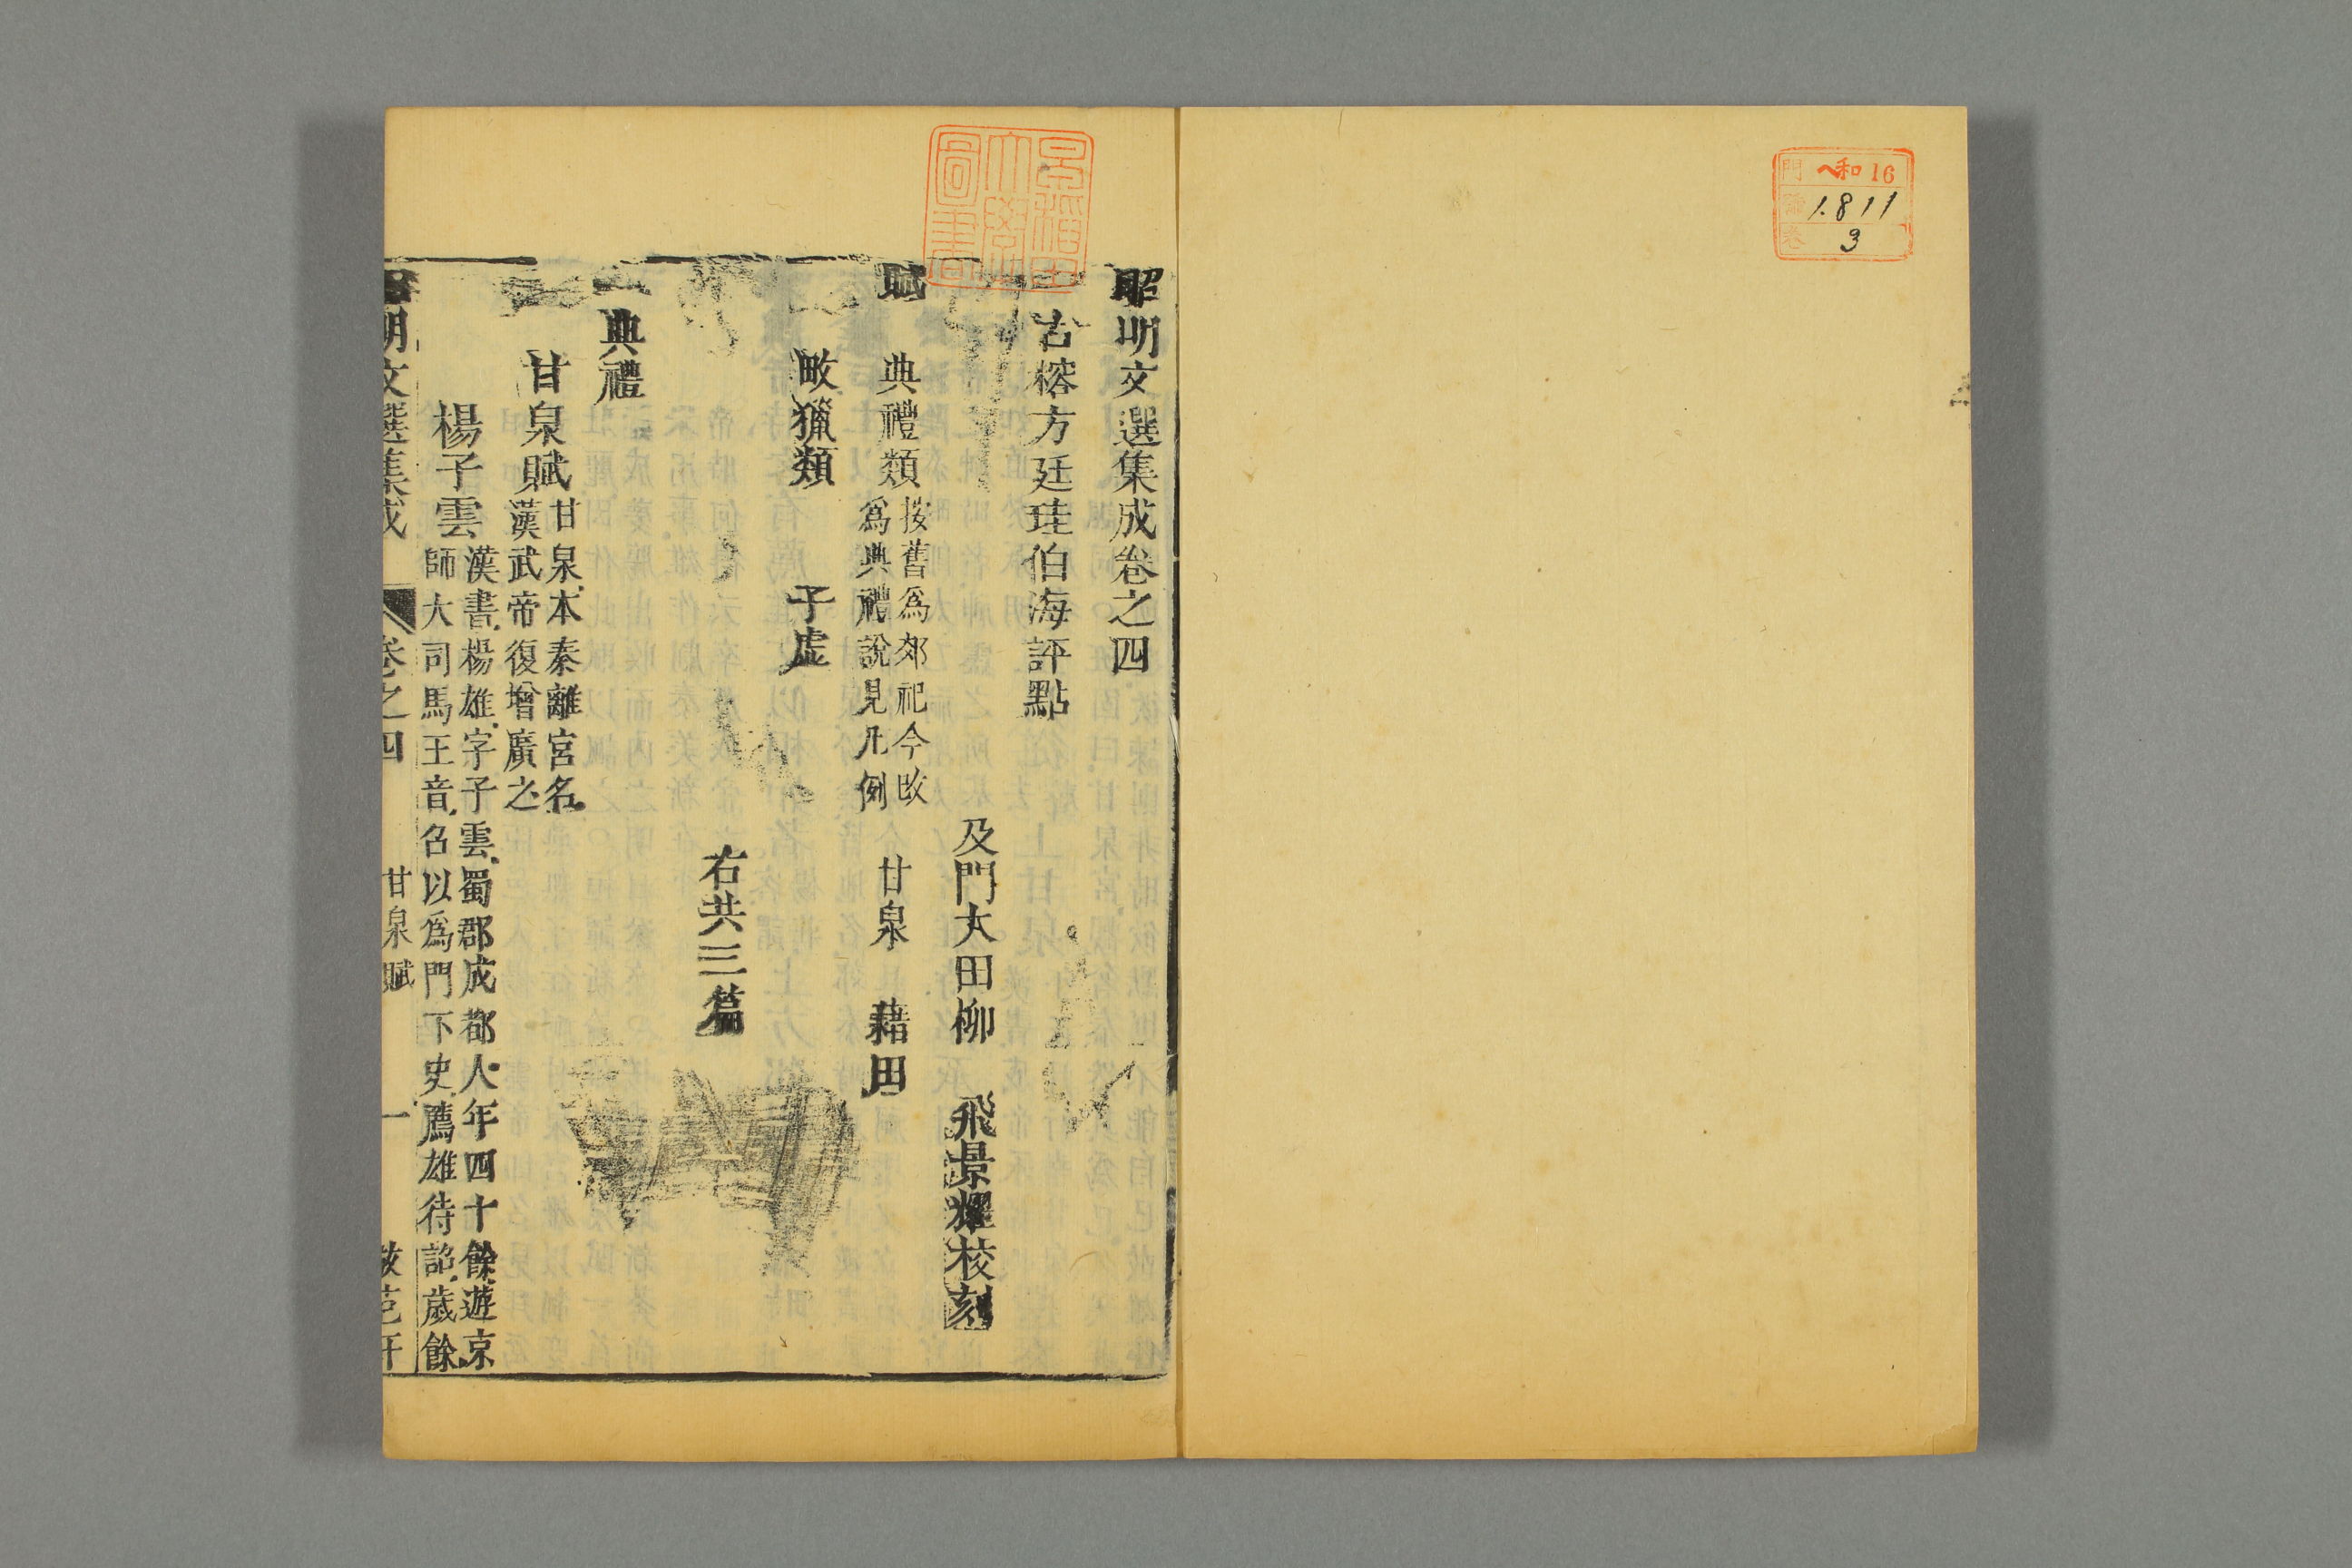 門 ヘ和16
號 1811
卷 3
早稻田
大學
圖書
昭明文選集成卷之四
古榕方廷珪伯海評點
及門大田柳 飛景耀校刻
賦
典禮類 按舊爲郊祀今改
爲典禮說見凡例
甘泉 藉田
畋獵類 子虛
右共三篇
典禮
甘泉賦 甘泉本秦離宮名
漢武帝復增廣之
楊子雲 漢書楊雄字子雲蜀郡成都人年四十餘遊京
師大司馬王音召以爲門下史薦雄待詔歲餘
昭明文選集成 卷之四 甘泉賦 一